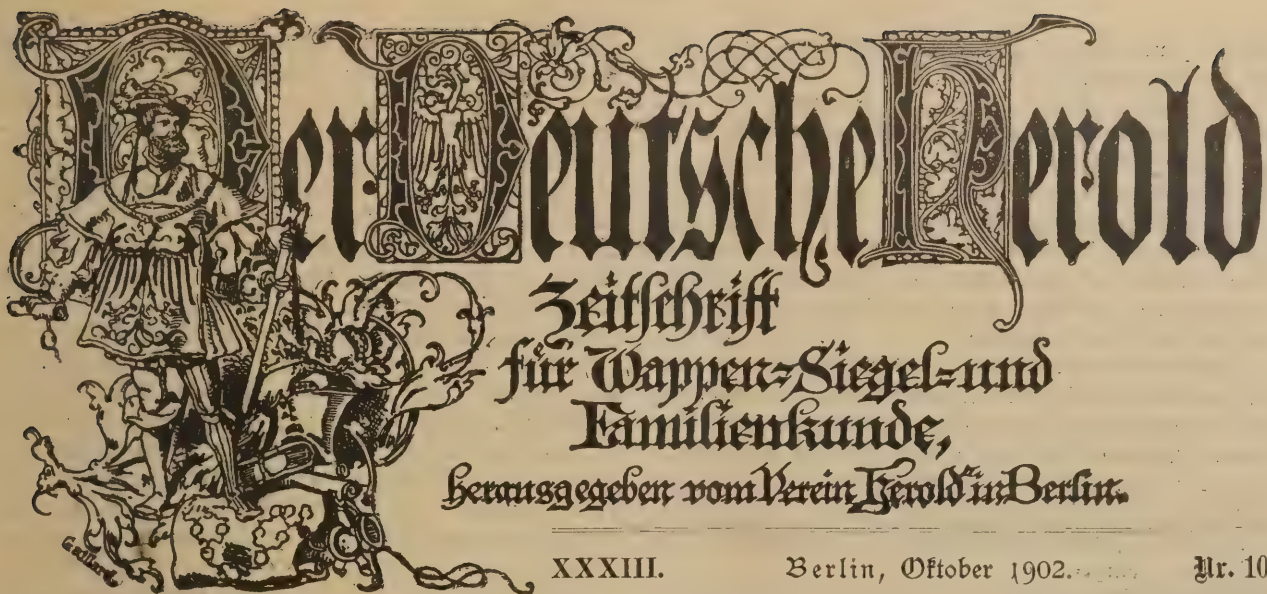 Der Deutsche Herold
Zeitschrift
für Wappen-Siegel-und
Familienkunde,
herausgegeben vom Verein Herold in Berlin.
XXXIII. Berlin, Oktober 1902. Nr. 10